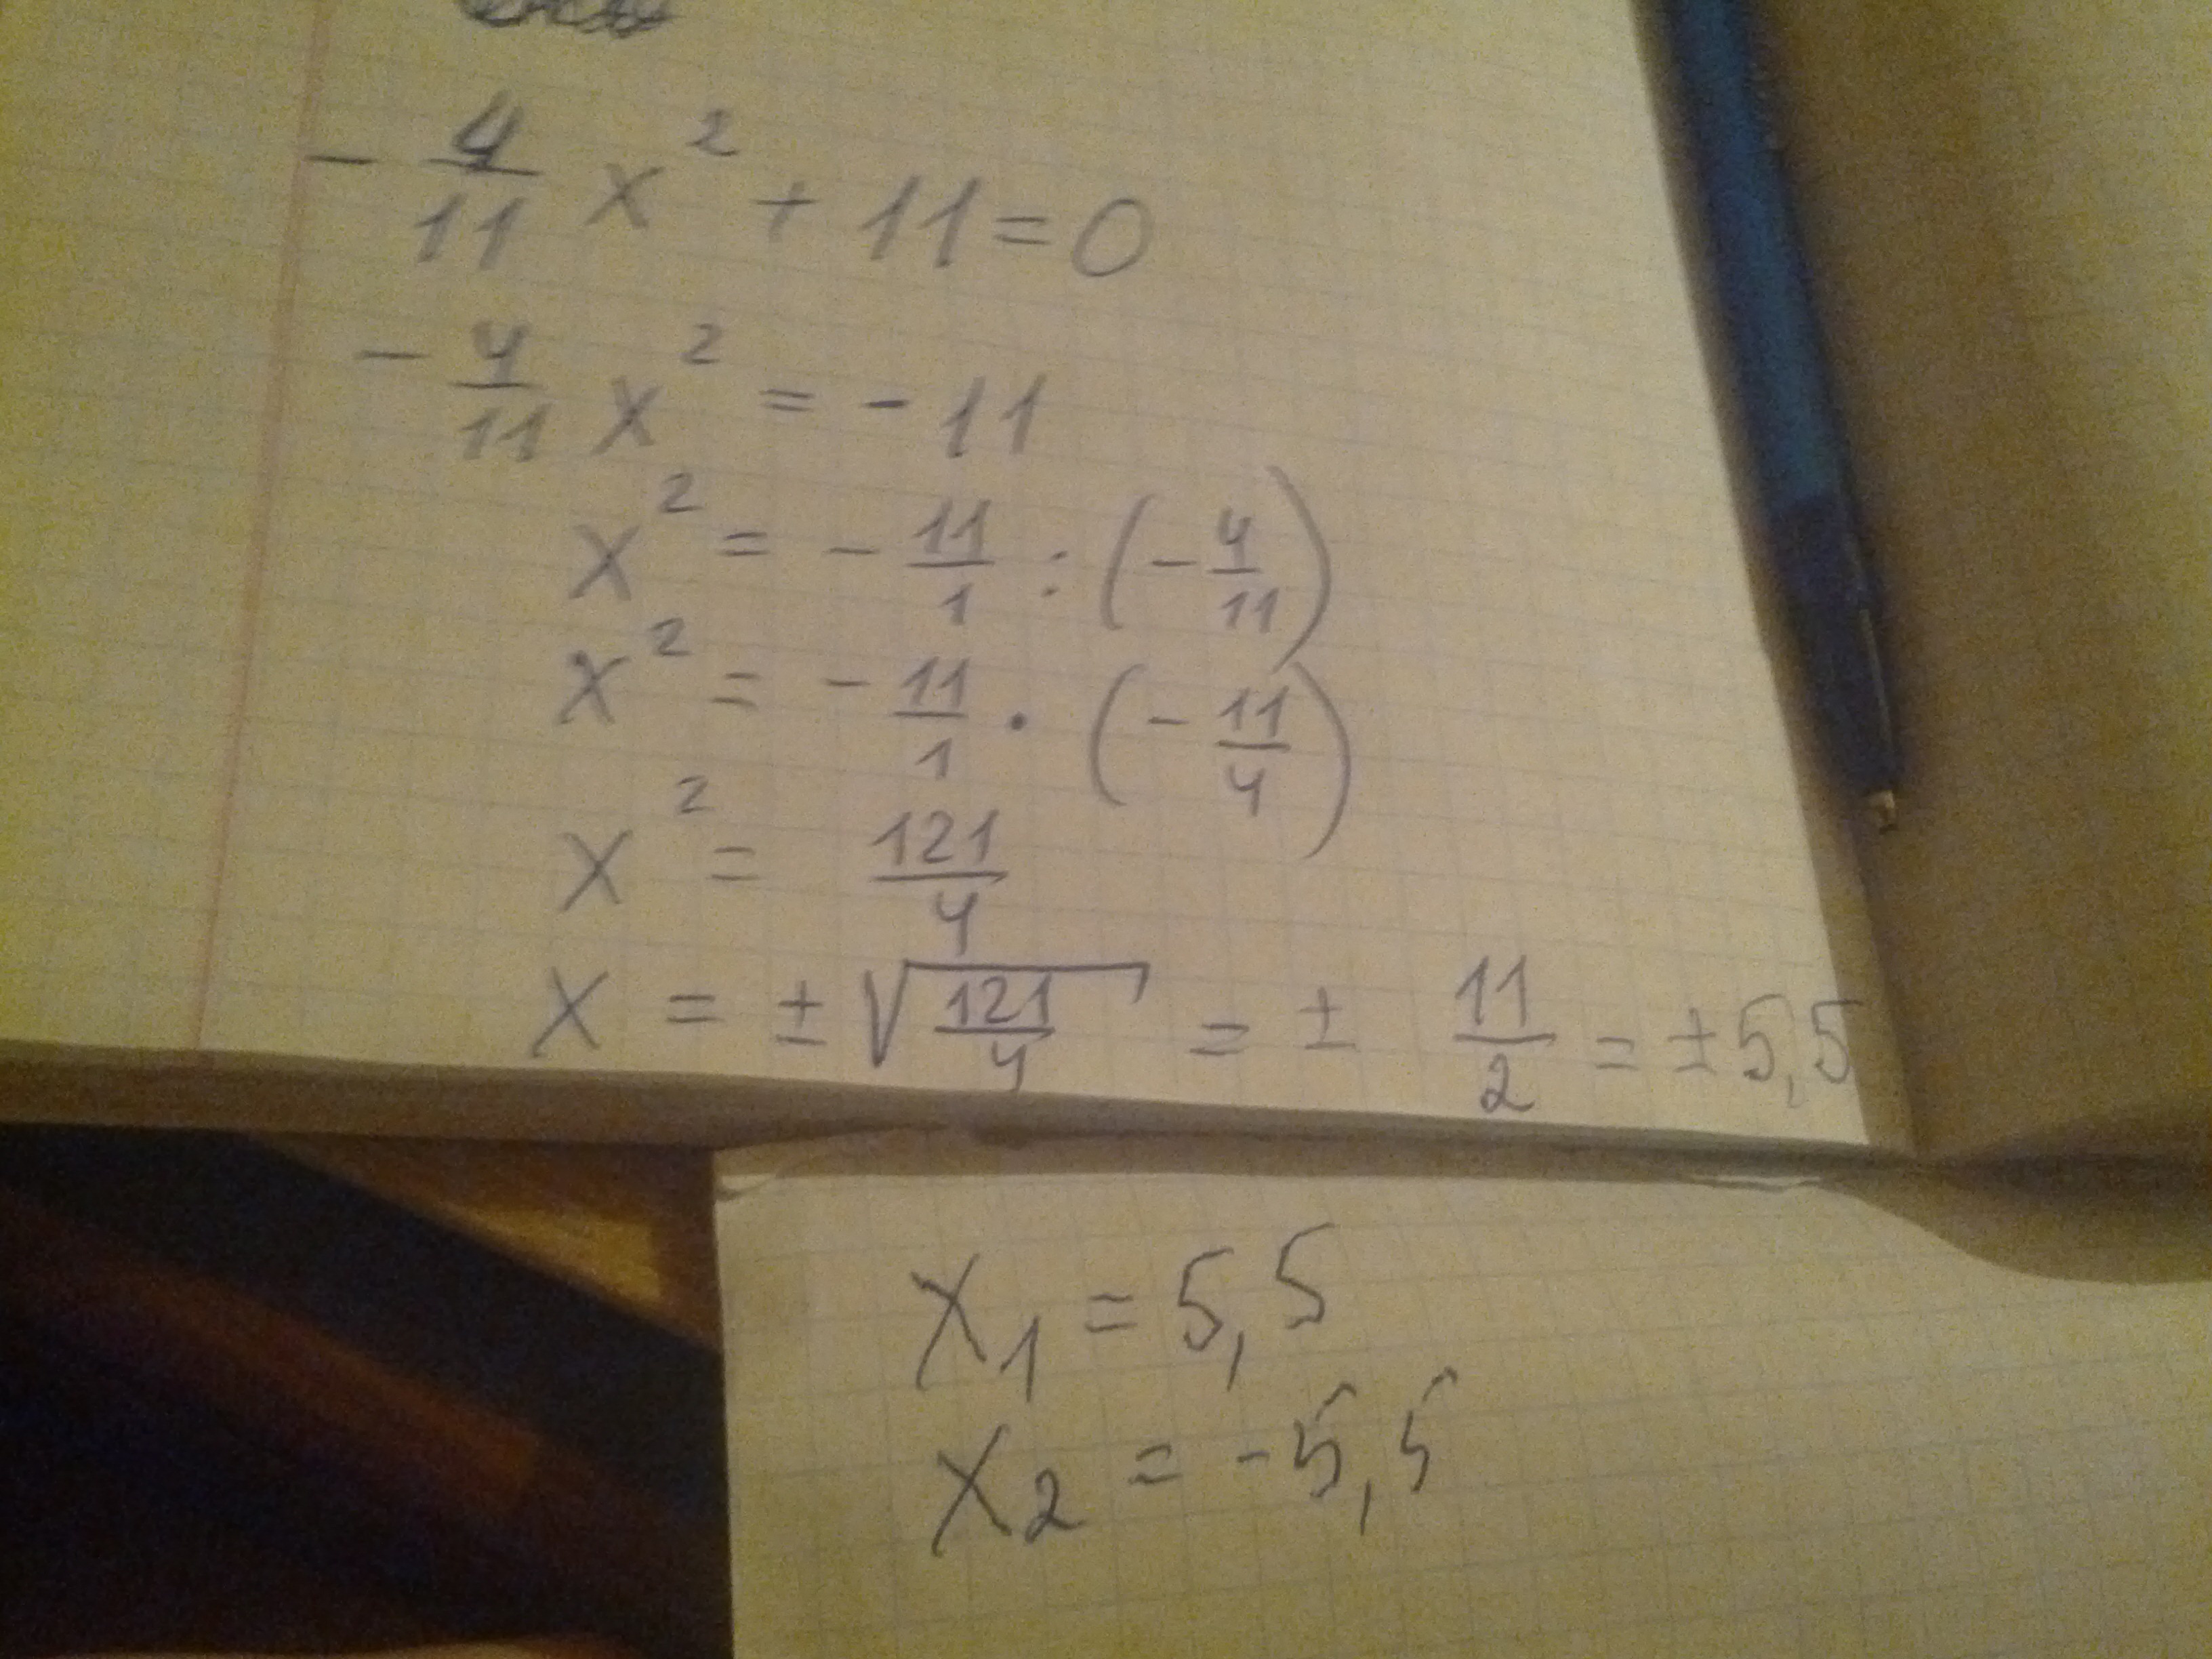 - 4/11 x² + 11 = 0
- 4/11 x² = - 11
x² = - 11/1 : (- 4/11)
x² = - 11/1 · (- 11/4)
x² = 121/4
x = ± √(121/4) = ± 11/2 = ± 5,5
x₁ = 5,5
x₂ = - 5,5